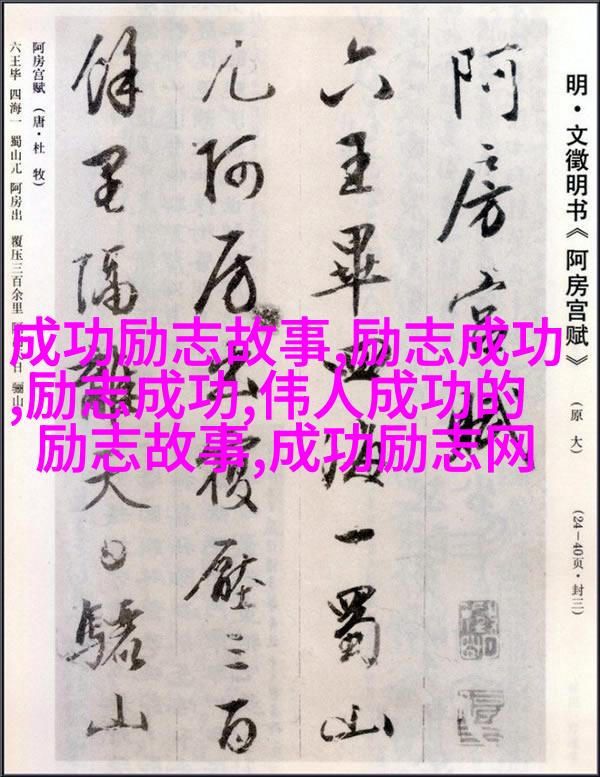 明·文徵明书《阿房宫赋》
(原大)
(24—40页·封三)
阿房宫賦
六王畢四海一蜀山
兀阿房出覆壓三百
餘里隔離天日驪山
阿房宫赋(唐·杜牧)
六王毕 四海一 蜀山兀 阿房出 覆压三百余里 日 骊山
成功励志故事,励志成功
,励志成功,伟人成功的
励志故事,成功励志网